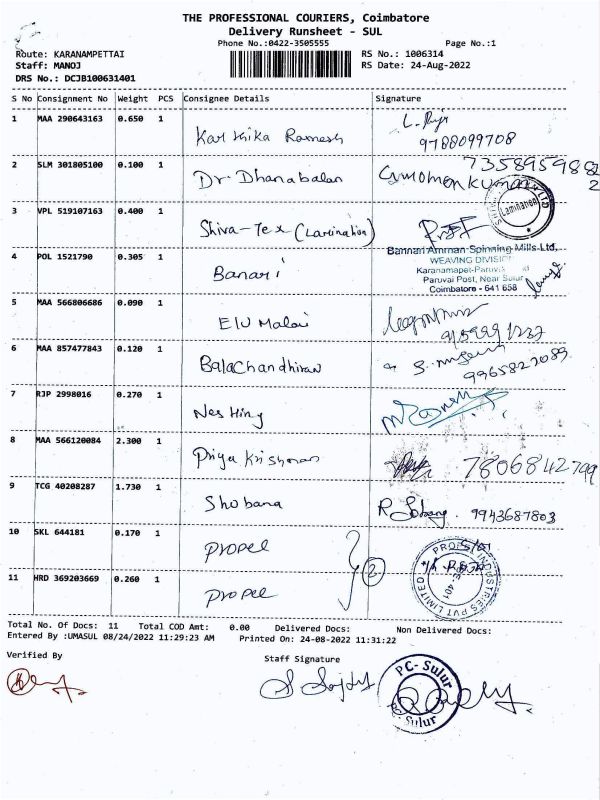 THE PROFESSIONAL COURIERS, Coimbatore
Delivery Runsheet - SUL
Phone No.:0422-3505555 Page No.:1
Route: KARANAMPETTAI RS No.: 1006314
Staff: MANOJ RS Date: 24-Aug-2022
DRS No.: DCJB100631401
S No Consignment No Weight PCS Consignee Details Signature
1 MAA 290643163 0.650 1 Karthika Ramesh
9788099708
2 SLM 301805100 0.100 1 Dr Dhanabalan
3 VPL 519107163 0.400 1 Shiva-Tex (Lamination) Lamination
4 POL 1521790 0.305 1 Banari
Bannari Amman Spinning Mills Ltd.,
WEAVING DIVISION
Karanamapet-Paruva
Paruvai Post, Near Sulur
Coimbatore - 641 658
5 MAA 566806686 0.090 1 Elu Malai
6 MAA 857477843 0.120 1 Balachandhiran
9965827089
7 RJP 2998016 0.270 1
8 MAA 566120084 2.300 1 Priya Krishnan 7806842799
9 TCG 40208287 1.730 1 Shobana 9943687803
10 SKL 644181 0.170 1 Propel
2
11 HRD 369203669 0.260 1 Propel
PROPEL INDUSTRIES PVT LIMITED
Total No. Of Docs: 11 Total COD Amt: 0.00 Delivered Docs: Non Delivered Docs:
Entered By :UMASUL 08/24/2022 11:29:23 AM Printed On: 24-08-2022 11:31:22
Verified By Staff Signature
PC- Sulur
PC- Sulur